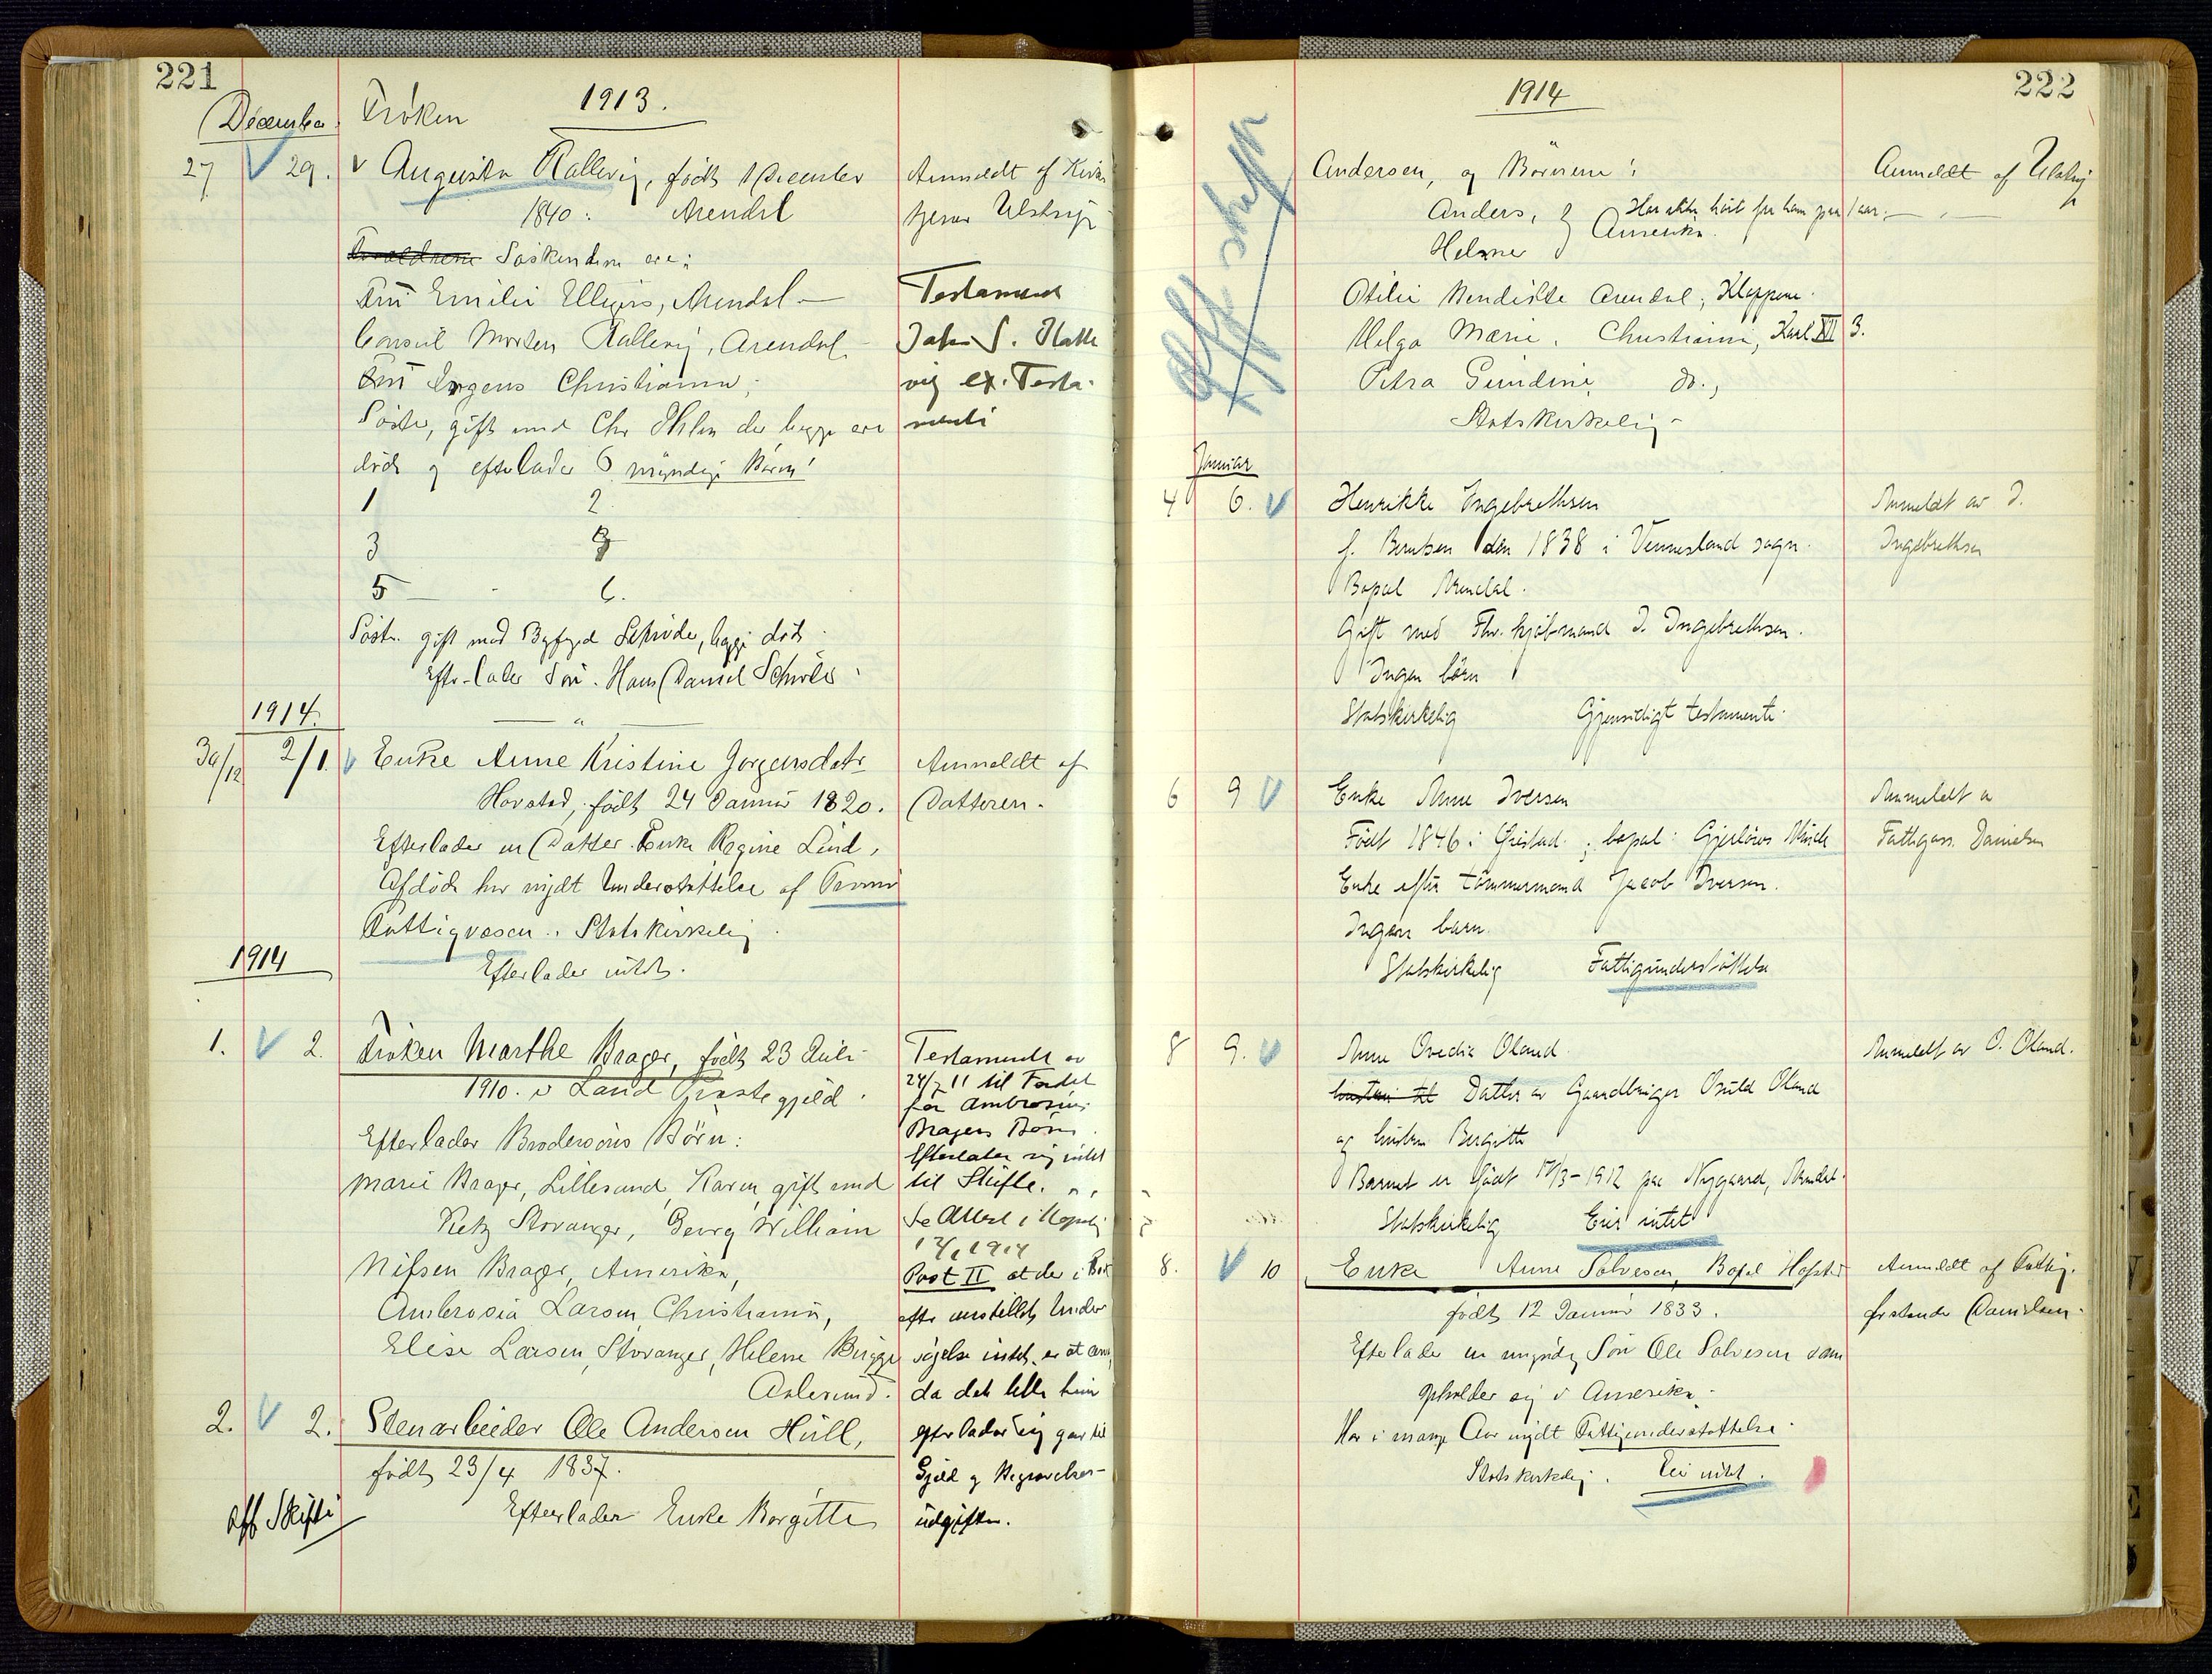 221
1913.
December.
Frøken
27 V 29. V Augusta Kallevig, født 1 December
1840. Arendal
Anmeldt af Kirke
tjener Ulstrup
Forældrene Søskendene ere:
Fru Emilie Ellers, Arendal —
Consul Morten Kallevig, Arendal.
Fru Christiania,
Søster, gift med Chr der begge ere
døde og efterlader 6 myndige Børn!
1 2
3
5 6.
Testament
John S.
ex. Testa-
menti
Søster gift med Byfoged Schrøder, begge døde
Efterlader Søn. Hans Daniel Schrøder
1914.
30/12 2/1. V Enke Anne Kristine Jørgensdatr
Havstad, født 24 Januar 1820.
Efterlader en Datter Enke Regine Lind,
Afdøde har nydt Understøttelse af Tromø
Fattigvæsen. Statskirkelig
Efterlader intet.
Anmeldt af
Datteren.
1914
1. V 2. Frøken Marthe Brager, født 23 Juli
1910. i Land Præstegjeld.
Efterlader Brodersøns Børn:
Marie Brager, Lillesand, Karen, gift med
Stavanger, Georg William
Nilsen Brager, Amerika,
Ambrosia Larsen, Christiania,
Elise Larsen, Stavanger, Helene Birgge
Aalesund.
Testament av
24/7 11 til Fordel
for Ambrosius
Bragers Børn.
Efterlater sig intet
til Skifte.
Se Attest i
1914
Post II at der i
efter anstillet Under
søgelse intet er at
da det lille hun
efterlader sig gaar til
Gjeld og Begravelses-
udgifter.
2. V 2. Stenarbeider Ole Andersen Hull,
født 23/4 1837.
Efterlader Enke Borgitte
Off Skifte
222
1914
Off. skifte
Andersen, og Børnene:
Anders, Har ikke hørt fra ham paa 1 aar.
Amerika.
Helene
Otilie Bendikte Arendal, Kloppene.
Helga Marie, Christiania, Karl XII 3.
Petra Gundine, do.,
Statskirkelig
Anmeldt af Ulstrup
Januar
4 6. V Henrikke Engebrethsen
f. Berntsen den 1838 i Vennesland sogn.
Bopæl Arendal.
Gift med Fhv. kjøbmand I. Ingebrethsen.
Ingen børn
Statskirkelig Gjensidigt testamente
Anmeldt av I.
Ingebrethsen
6 9 V Enke Anne Iversen
Født 1846 i ; bopæl: Gjerløws Minde
Enke efter tømmermand Jacob Iversen.
Ingen barn.
Statskirkelig Fattigunderstøttelse
Anmeldt av
Danielsen
8 9. V Anne Ovedia Oland
hustru til Datter av Gaardbruger Osuld Oland
og hustru Birgitte
Barnet er født /3-1912 paa Nygaard, Arendal.
Statskirkelig Eier intet
Anmeldt av O. Oland.
8. V 10 Enke Anne Salvesen, Bopæl
født 12 Januar 1833.
Efterlader en myndig Søn Ole Salvesen som
opholder sig i Amerika.
Har i mange Aar nydt Fattigunderstøttelse.
Statskirkelig. Eier intet.
Anmeldt af Fattig.
forstander Danielsen.